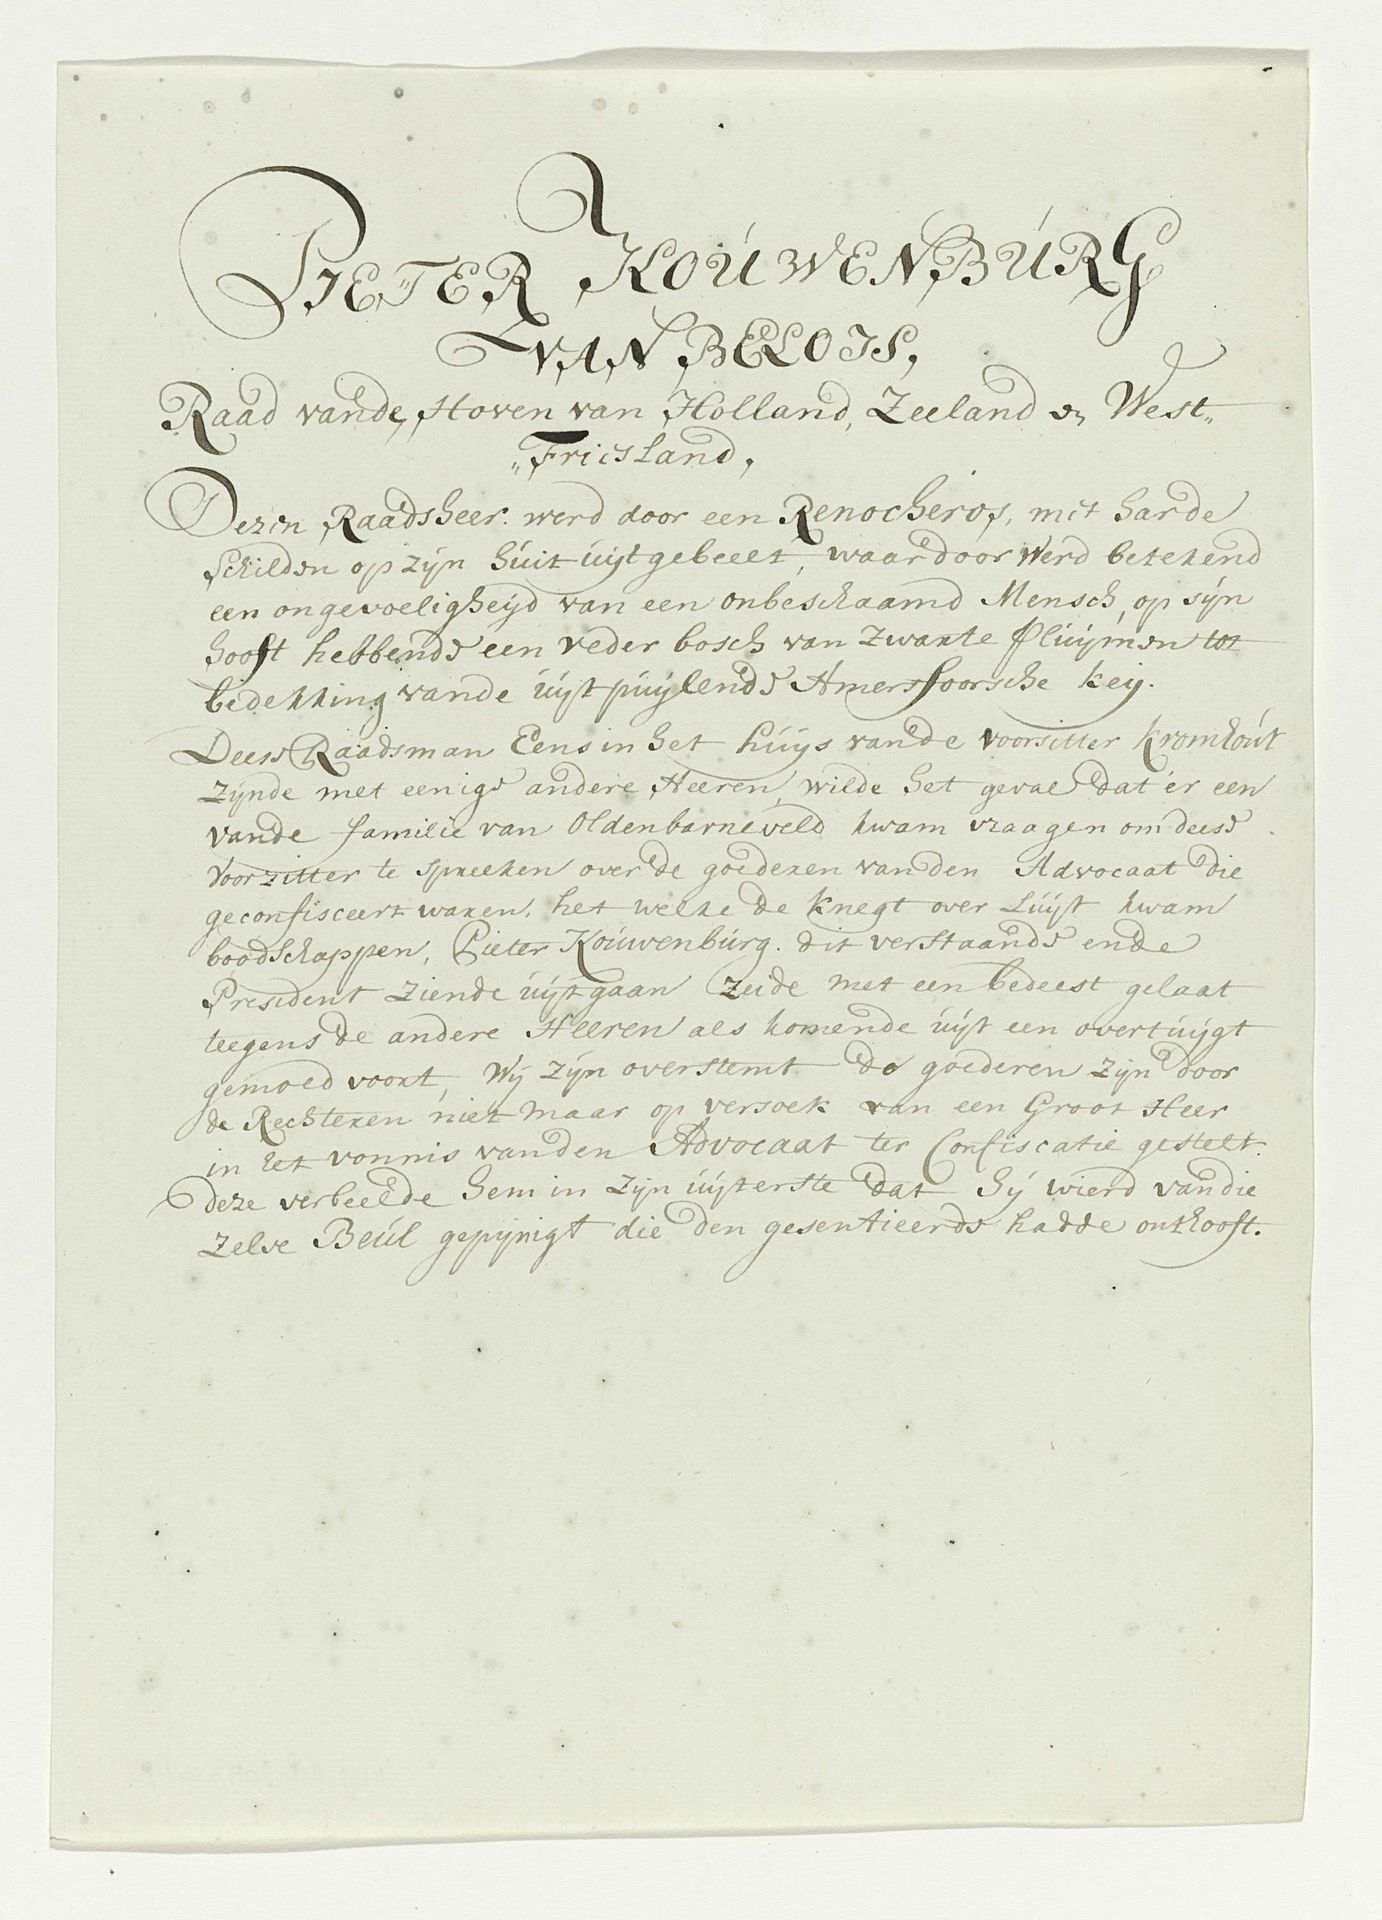 PIETER KOÚWENBÚRG
VAN BELOIS,
Raad vande, Hoven van Holland, Zeeland en West„
„Friesland,
Dezen Raadsheer. werd door een Renocheros, met harde
Schilden op zÿn húit úijtgebeelt, waardoor werd betekend
een ongevoeligheijd van een onbeschaamd Mensch, op sÿn
hooft hebbende een veder bosch van zwarte Pluÿmen tot
bedekking vande úijtpúijlende Amersfoorsche keij.
Deese Raadsman Eens in het húijs vande voorsitter Kromhóút
zÿnde met eenige andere Heeren, wilde het geval dat ér een
vande familie van Oldenbarneveld kwam vraagen om deese
voorzitter te spreeken over de goederen van den Advocaat die
geconfisceert waren, het welke de knegt over Lúÿt kwam
boodschappen, Pieter Koúwenbúrg. dit verstaande ende
President ziende úijtgaan zeide met een bedeest gelaat
teegens de andere Heeren als komende úijt een overtúijgt
gemoed voort, Wij zÿn overstemt de goederen zÿn door
de Rechteren niet maar op versoek van een Groot Heer
in het vonnis van den Advocaat ter Confiscatie gestelt.
deze verbeelde hem in zÿn úijterste dat hÿ wierd van die
zelve Beúl gepijnigt die den gesentieerde hadde onthooft.